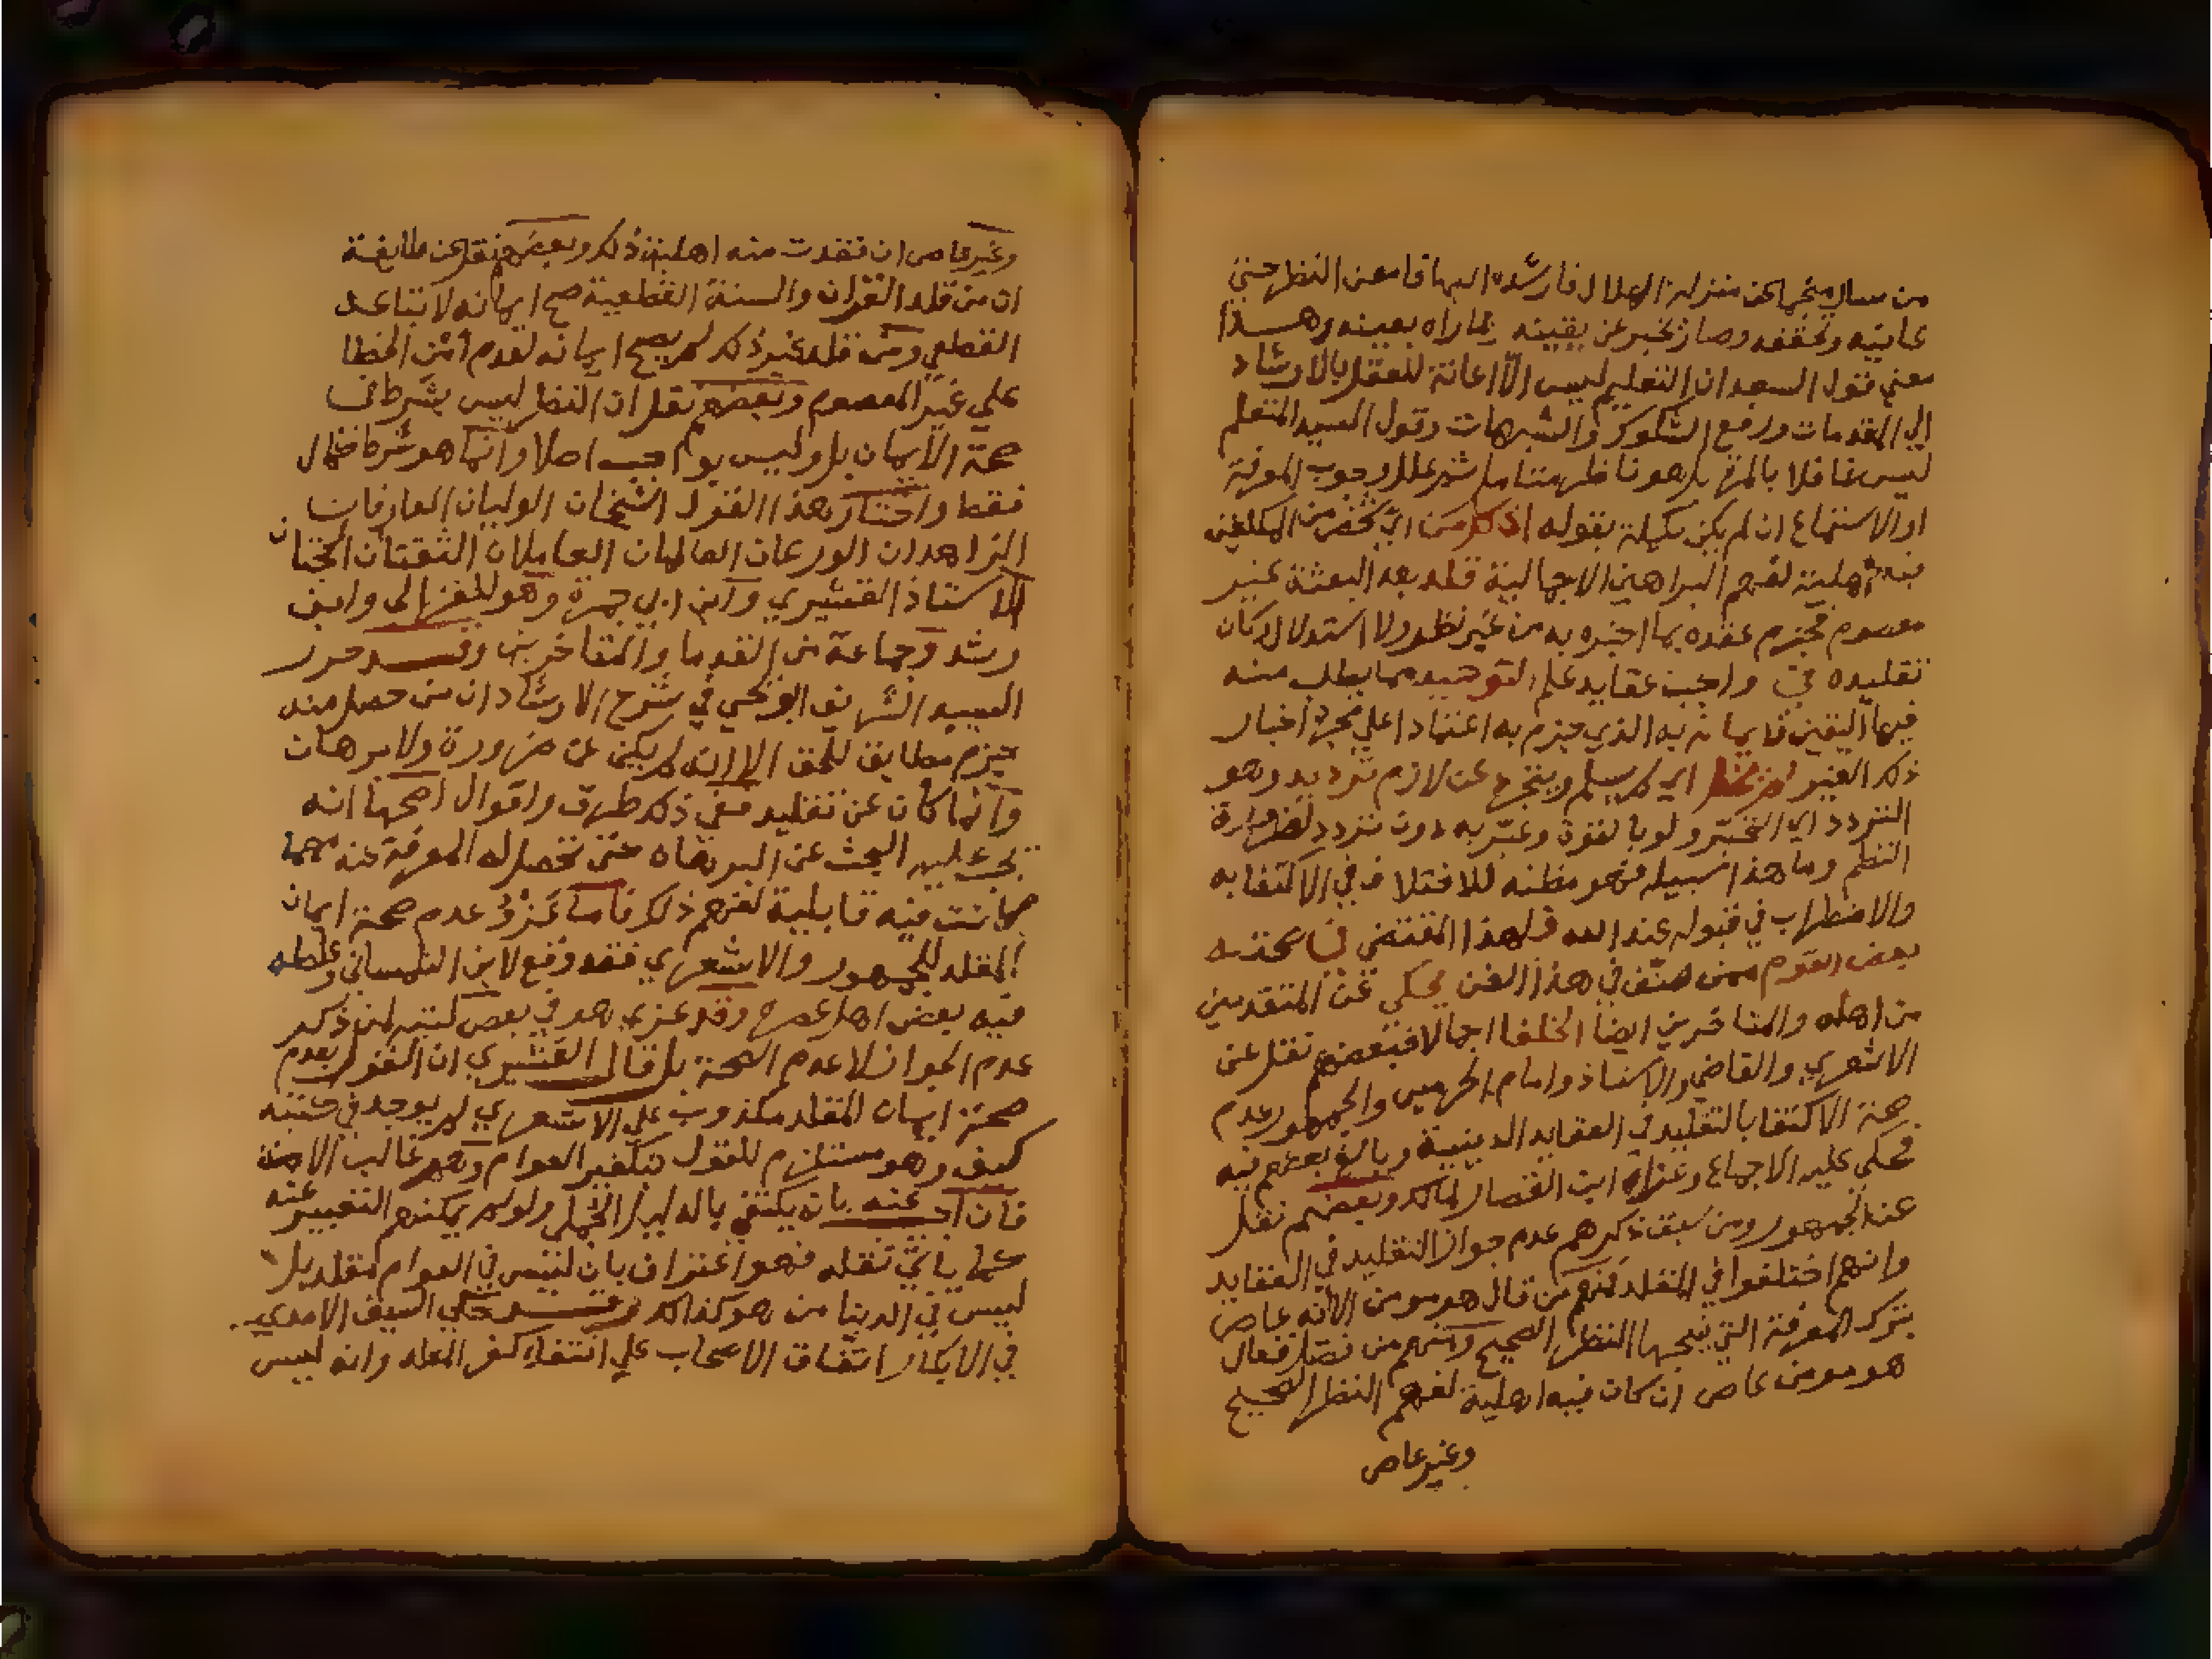 من سال منجما عن منزلة الهلال فارشده اليها فامعن النظر حتي
عاينه وتحققه وصار يخبر عن يقينه بما راه بعينه وهذا
معني قول السعد ان التعليم ليس الا اعانة للعقل بالارشاد
الي المقدمات ورفع الشكوك والشبهات وقول السيد المتعلم
ليس غافلا بالمرة بل هو ناظر متامل ثم علل وجوب المعرفة
او الاستماع ان لم يكن تكملة بقوله اذ كل من اي شخص من المكلفين
فيه اهلية لفهم البراهين الاجمالية قلد بعد البعثة غير
معصوم فجزم عقده بما اخبره به من غير نظر ولا استدلال كان
تقليده في واجب عقايد علم التوحيد مما يطلب منه
فيها اليقين فايمانه به الذي جزم به اعتمادا علي مجرد اخبار
ذلك الغير لم يخل اي لم يسلم ويتخرج عن لازم ترديد وهو
التردد اي التحير ولو بالقوة وعبر به دون تردد لضرورة
النظم وما هذا سبيله فهو مظنه للاختلاف في الاكتفا به
والاضطراب في قبوله عند الله فلهذا المقتضي
بعض القوم ممن صنف في هذا الفن يحكي عن المتقدمين
من اهله والمتاخرين ايضا الخلفا اجمالا فبعضهم نقل عن
الاشعري والقاضي والاستاذ وامام الحرمين والجمهور عدم
صحة الاكتفا بالتقليد في العقايد الدينية وبالغ بعضهم فيه
فحكي عليه الاجماع وعزاه ابن القصار لمالك وبعضهم نقل
عن الجمهور ومن سبق ذكرهم عدم جواز التقليد في العقايد
وانهم اختلفوا في المقلد فمنهم من قال هو مومن الا انه عاص
بترك المعرفة التي ينتجها النظر الصحيح ومنهم من فصل فقال
هو مومن عاص ان كان فيه اهلية لفهم النظر الصحيح
وغير عاص
وغير عاص ان فقدت منه اهلية ذلك وبعضهم نقل عن طايفة
ان من قلد القران والسنة القطعية صح ايمانه لاتباعه
القطعي ومن قلد غير ذلك لم يصح ايمانه لعدم امن الخطا
علي غير المعصوم وبعضهم نقل ان النظر ليس بشرط في
صحة الايمان بل وليس بواجب اصلا وانما هو شرط كمال
فقط واختار هذا القول الشيخان الوليان العارفان
الزاهدان الورعان العالمان العاملان الثقتان الحجتان
الاستاذ القشيري وابن ابي جمرة وهو للغزالي وابن
رشد وجماعة من القدما والمتاخرين وقد حرر
السيد الشريف ابو يحيي في شرح الارشاد ان من حصل منه
جزم مطابق للحق الا انه لم يكن عن ضرورة ولا برهان
وانما كان عن تقليد ففي ذلك طرق واقوال اصحها انه
يجب عليه البحث عن البرهان حتي تحصل له المعرفة عنه مهما
كانت فيه قابلية لفهم ذلك فاما عزو عدم صحة ايمان
المقلد للجمهور والاشعري فقد وقع لابن التلمساني وغلطه
فيه بعض اهل عصره وقد عزي هو في بعض كتبه لمن ذكر
عدم الجواز لا عدم الصحة بل قال القشيري ان القول بعدم
صحة ايمان المقلد مكذوب علي الاشعري لم يوجد في كتبه
كيف وهو مستلزم للقول بتكفير العوام وهم غالب الامة
فان اجيب عنه بانه يكتفي بالدليل الجملي ولو لم يمكنهم التعبير عنه
كما ياتي نقله فهو اعتراف بان ليس في العوام مقلد بل
ليس في الدنيا من هو كذلك وقد حكي السيف الامدي
في الابكار اتفاق الاصحاب علي انتفاء كفر المقلد وانه ليس